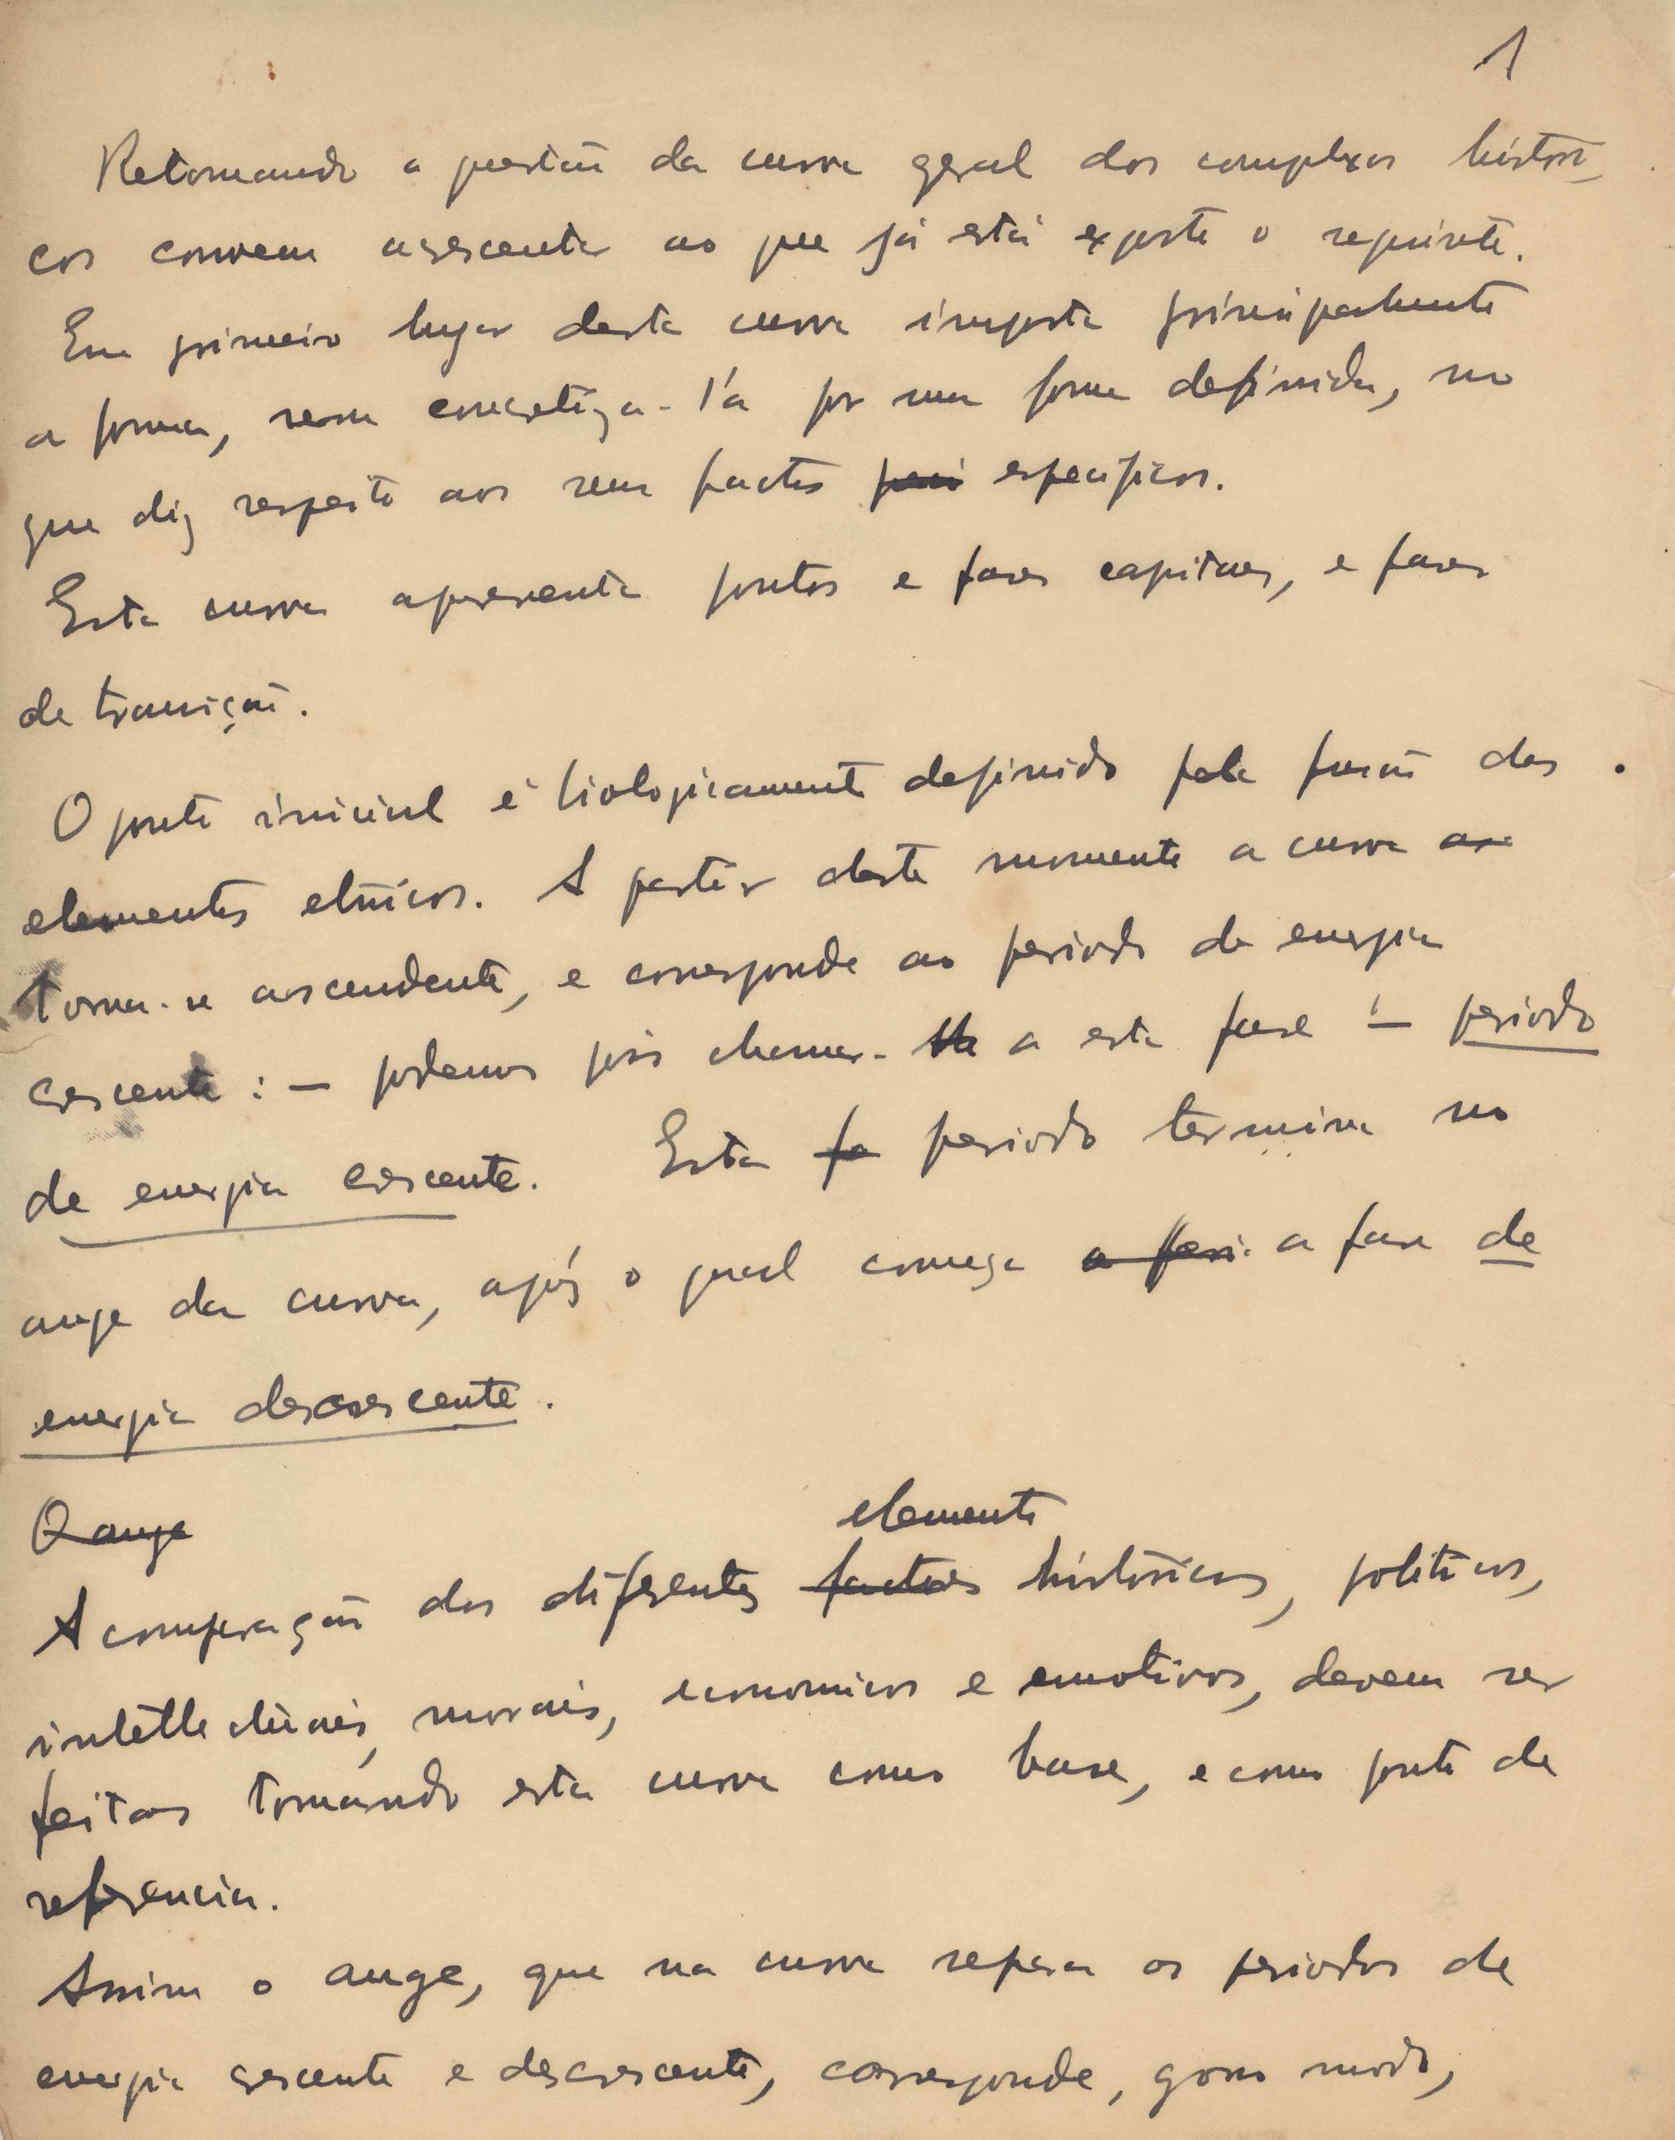 1
Retomando a questão da curva geral dos complexos histori-
cos convem acrescentar ao que já está exposto o seguinte.
Em primeiro lugar desta curva importa principalmente
a forma, sem concretiza-l'a por uma forma definida, no
que diz respeito aos seus factos especificos.
Esta curva apresenta pontos e fases capitaes, e fases
de transição.
O ponto inicial é biologicamente definido pela fusão dos
elementos etnicos. A partir deste momento a curva as
torna-se ascendente, e corresponde ao periodo de energia
crescente: — podemos pois chamar- a esta fase : — periodo
de energia crescente. Esta fa periodo termina no
auge da curva, após o qual começa a fase de
energia descrescente.
O auge
elementos
A comparação dos diferentes factores históricos, politicos,
intellectuais, morais, economicos e emotivos, devem ser
feitas tomando esta curva como base, e como ponto de
referencia.
Assim o auge, que na curva separa os periodos de
energia crescente e descrescente, corresponde, grosso modo,